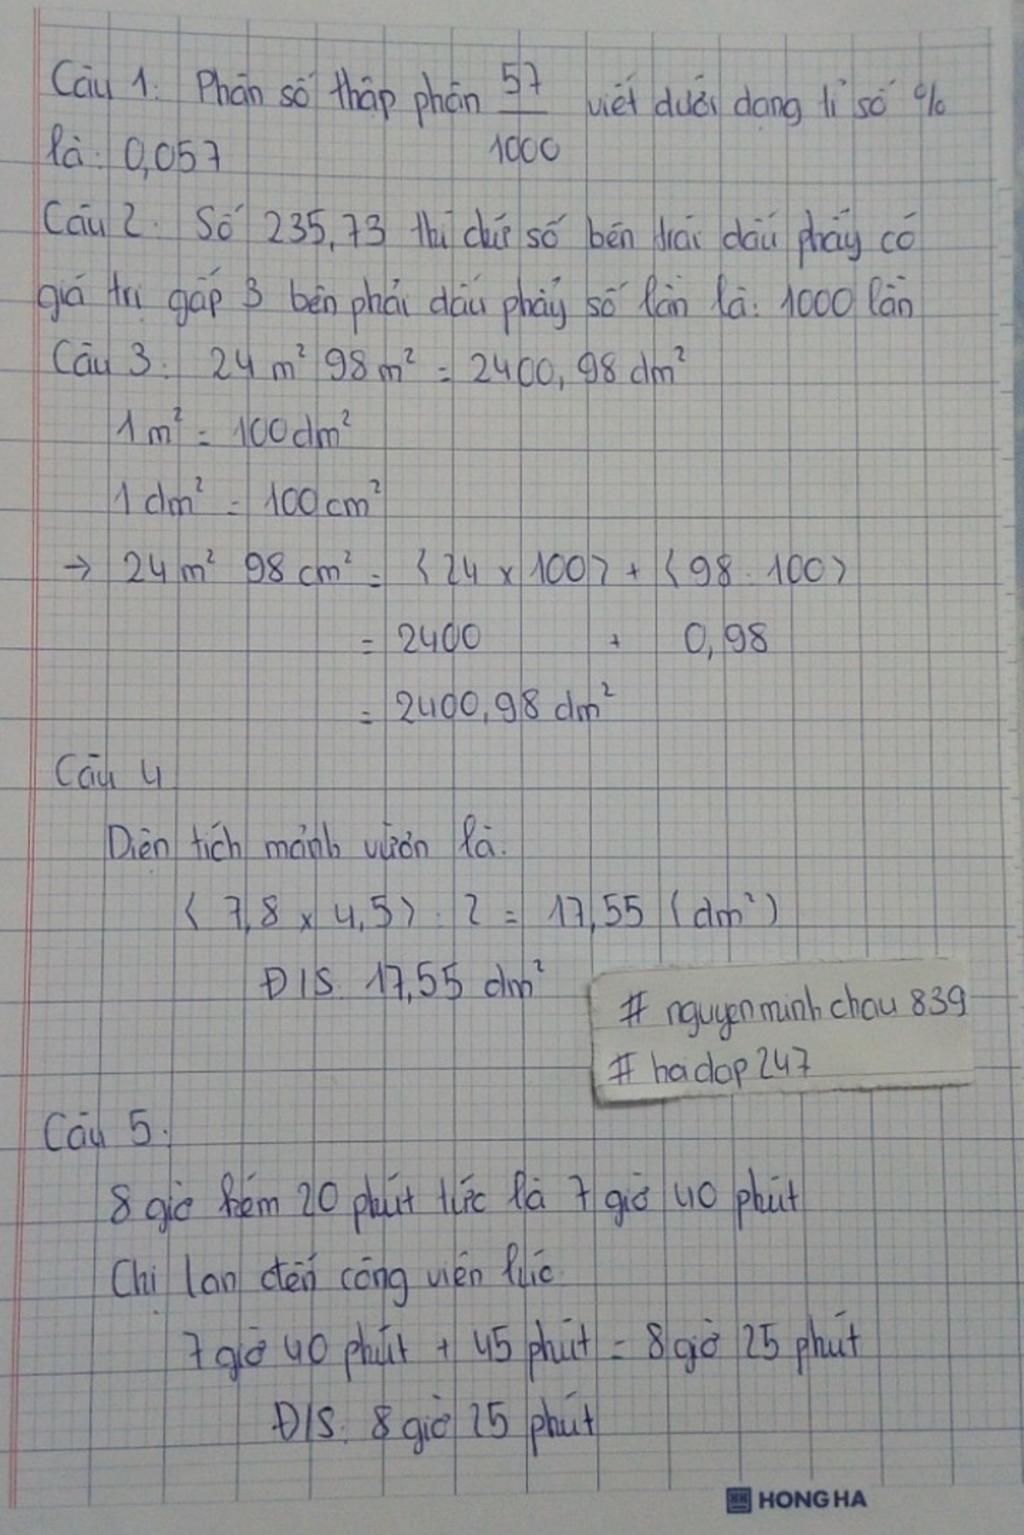 Câu 1: Phân số thập phân 57/1000 viết dưới dạng tỉ số %
là: 0,057
Câu 2: Số 235,73 thì chữ số bên trái dấu phẩy có
giá trị gấp 3 bên phải dấu phẩy số lần là: 1000 lần
Câu 3: 24 m² 98 m² = 2400,98 dm²
1 m² = 100 dm²
1 dm² = 100 cm²
→ 24 m² 98 cm² = (24 x 100) + (98 : 100)
= 2400 + 0,98
= 2400,98 dm²
Câu 4
Diện tích mảnh vườn là:
(7,8 x 4,5) : 2 = 17,55 (dm²)
Đ/S: 17,55 dm²
# nguyenminhchau839
# hoidap247
Câu 5:
8 giờ kém 20 phút tức là 7 giờ 40 phút
Chị lan đến công viên lúc:
7 giờ 40 phút + 45 phút = 8 giờ 25 phút
Đ/S: 8 giờ 25 phút
HONG HA